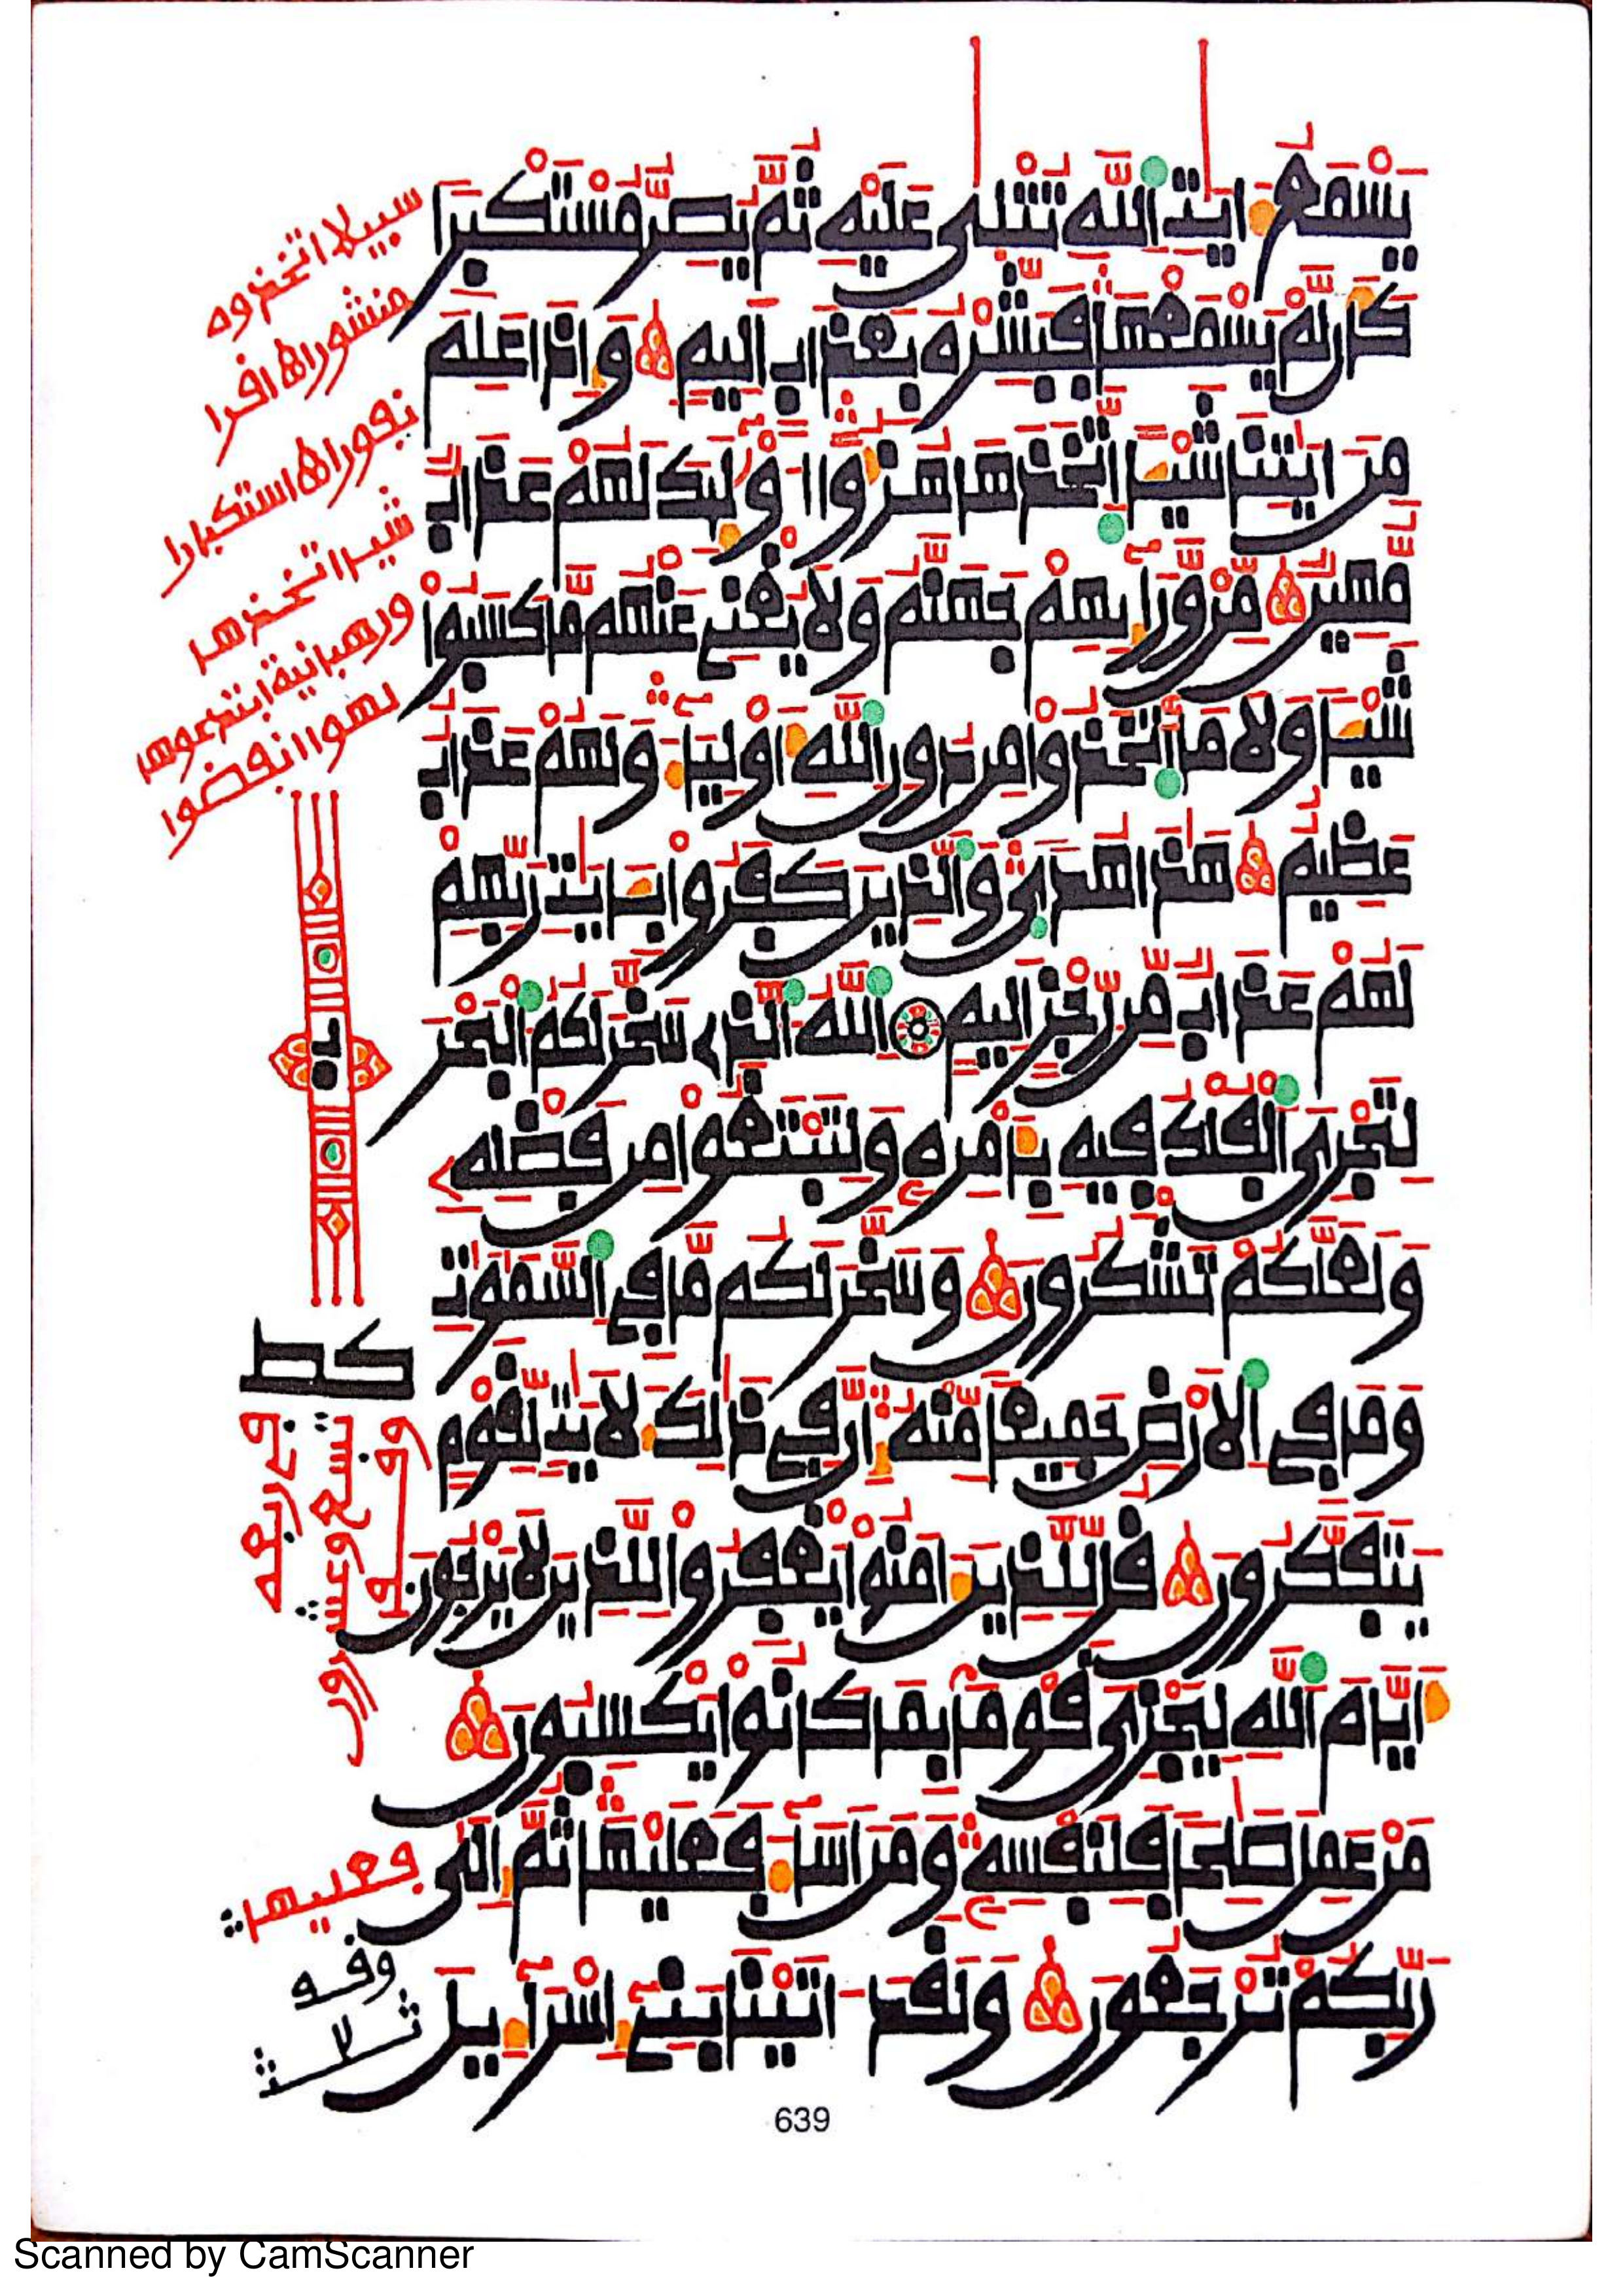 يَسْمَعُ ءَايَٰتِ اللَّهِ تُتْلَىٰ عَلَيْهِ ثُمَّ يُصِرُّ مُسْتَكْبِرًا
كَأَن لَّمْ يَسْمَعْهَا فَبَشِّرْهُ بِعَذَابٍ أَلِيمٍ وَإِذَا عَلِمَ
مِنْ ءَايَٰتِنَا شَيْـًٔا اتَّخَذَهَا هُزُؤًا أُوْلَٰٓئِكَ لَهُمْ عَذَابٌ
مُّهِينٌ مِّنْ وَّرَآئِهِمْ جَهَنَّمُ وَلَا يُغْنِي عَنْهُم مَّا كَسَبُوا
شَيْـًٔا وَلَا مَا اتَّخَذُوا مِن دُونِ اللَّهِ أَوْلِيَآءَ وَلَهُمْ عَذَابٌ
عَظِيمٌ هَٰذَا هُدًى وَالَّذِينَ كَفَرُوا بِـَٔايَٰتِ رَبِّهِمْ
لَهُمْ عَذَابٌ مِّن رِّجْزٍ أَلِيمٍ اللَّهُ الَّذِي سَخَّرَ لَكُمُ الْبَحْرَ
لِتَجْرِيَ الْفُلْكُ فِيهِ بِأَمْرِهِ وَلِتَبْتَغُوا مِن فَضْلِهِ
وَلَعَلَّكُمْ تَشْكُرُونَ وَسَخَّرَ لَكُم مَّا فِي السَّمَٰوَٰتِ
وَمَا فِي الْأَرْضِ جَمِيعًا مِّنْهُ إِنَّ فِي ذَٰلِكَ لَأَيَٰتٍ لِّقَوْمٍ
يَتَفَكَّرُونَ قُل لِّلَّذِينَ ءَامَنُوا يَغْفِرُوا لِلَّذِينَ لَا يَرْجُونَ
أَيَّامَ اللَّهِ لِيَجْزِيَ قَوْمًا بِمَا كَانُوا يَكْسِبُونَ
مَنْ عَمِلَ صَٰلِحًا فَلِنَفْسِهِ وَمَنْ أَسَآءَ فَعَلَيْهَا ثُمَّ إِلَىٰ
رَبِّكُمْ تُرْجَعُونَ وَلَقَدْ ءَاتَيْنَا بَنِي إِسْرَآءِيلَ
سبيلا اتخذوه
منشورا ها افرا
نفورا ها استكبارا
شيـا اتخذها
ورهبانية ابتدعوها
لهوا انفضوا
كط
تسع وعشرون
فعليها
639
Scanned by CamScanner